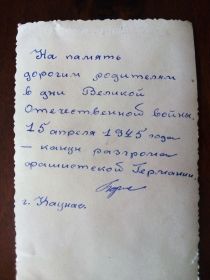 На память
дорогим родителям
в дни Великой
Отечественной войны,
15 апреля 1945 года
— канун разгрома
фашистской Германии.
г. Каунас.